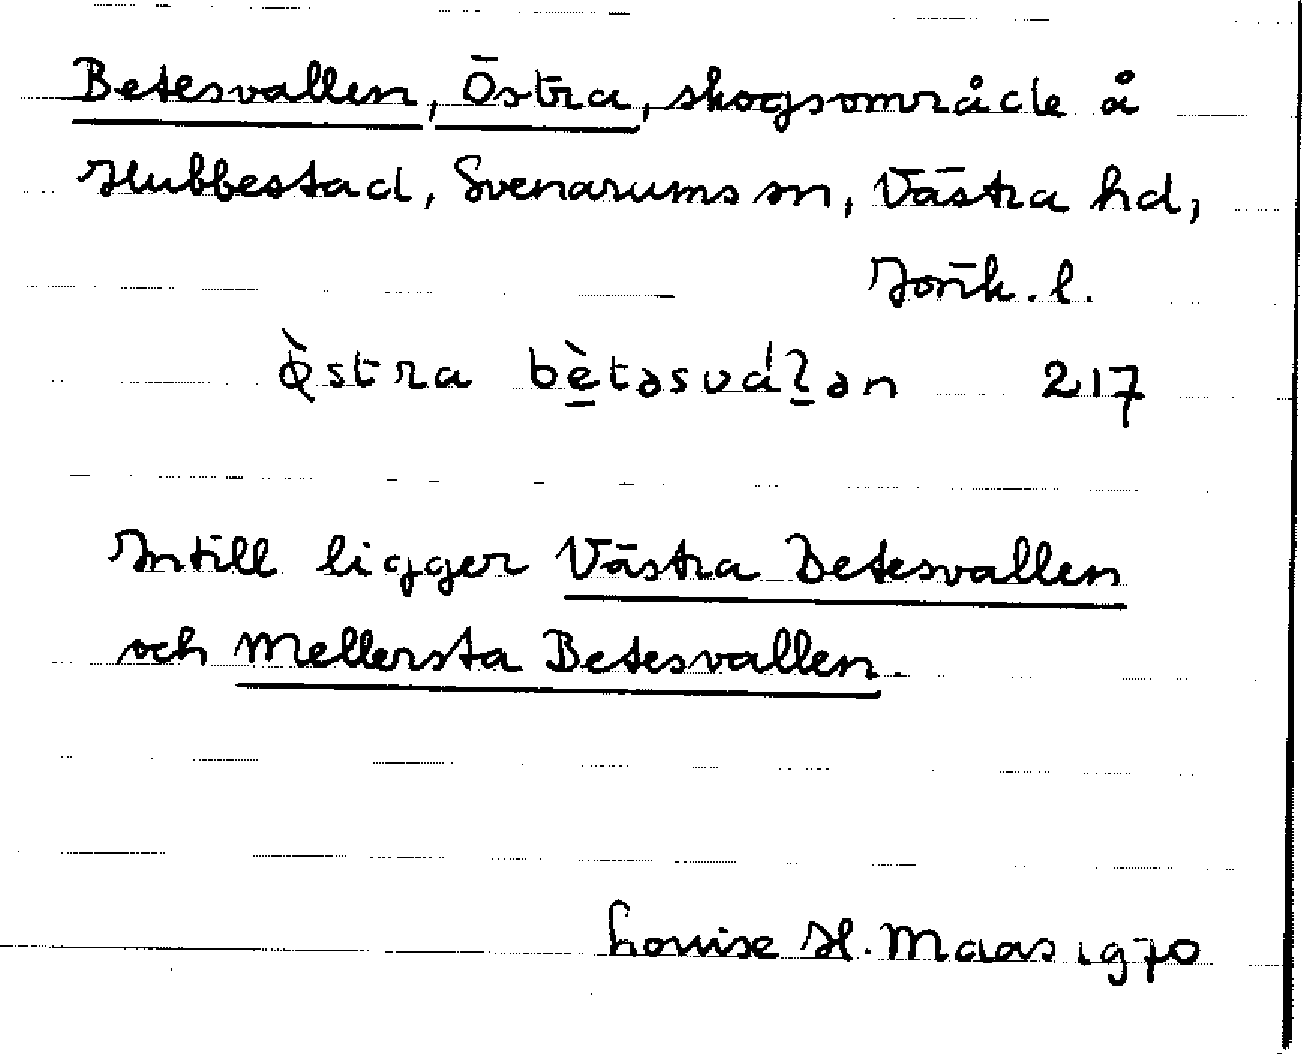 Betesvallen, Östra, skogsområde å
Hubbestad, Svenarums sn, Västra hd,
Jönk. l.
ø̀stra bètəsválən 217
Intill ligger Västra Betesvallen
och Mellersta Betesvallen.
Louise H. Maas 1970